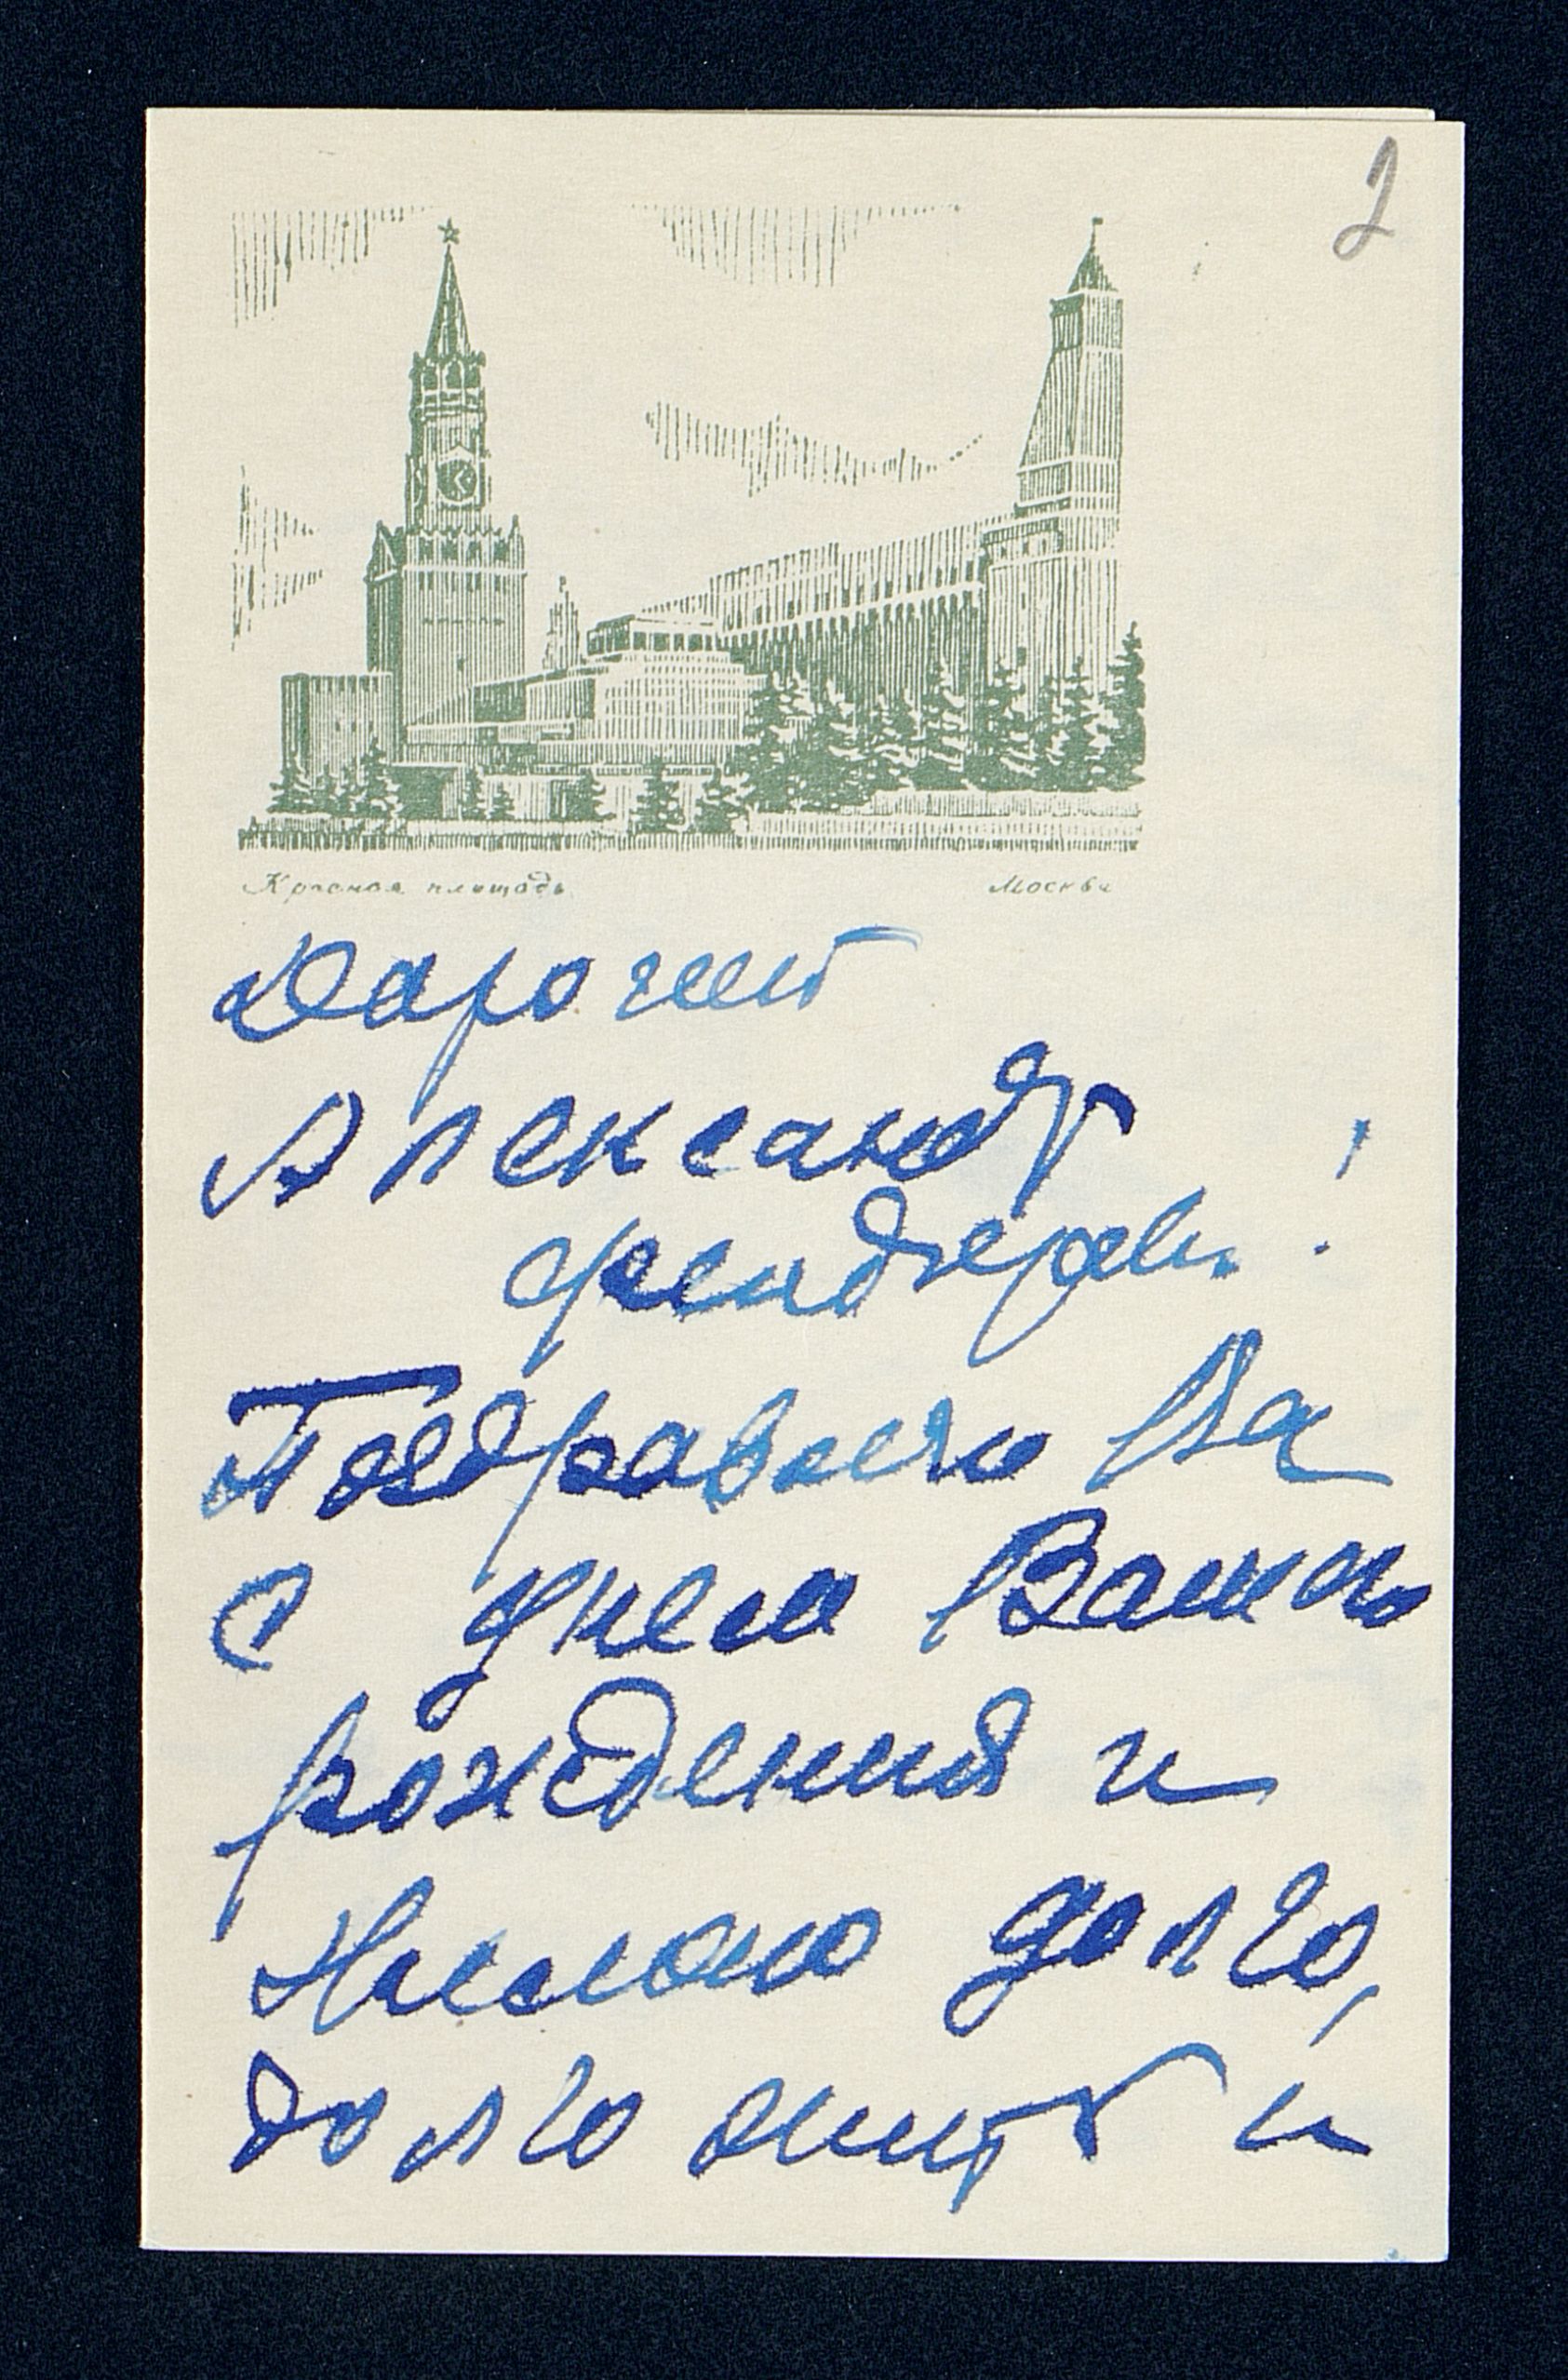 2
Красная площадь Москва
Дорогой
Александр
!
Поздравляю Ва
с днем Вашего
рождения и
Желаю долго,
долго жить и